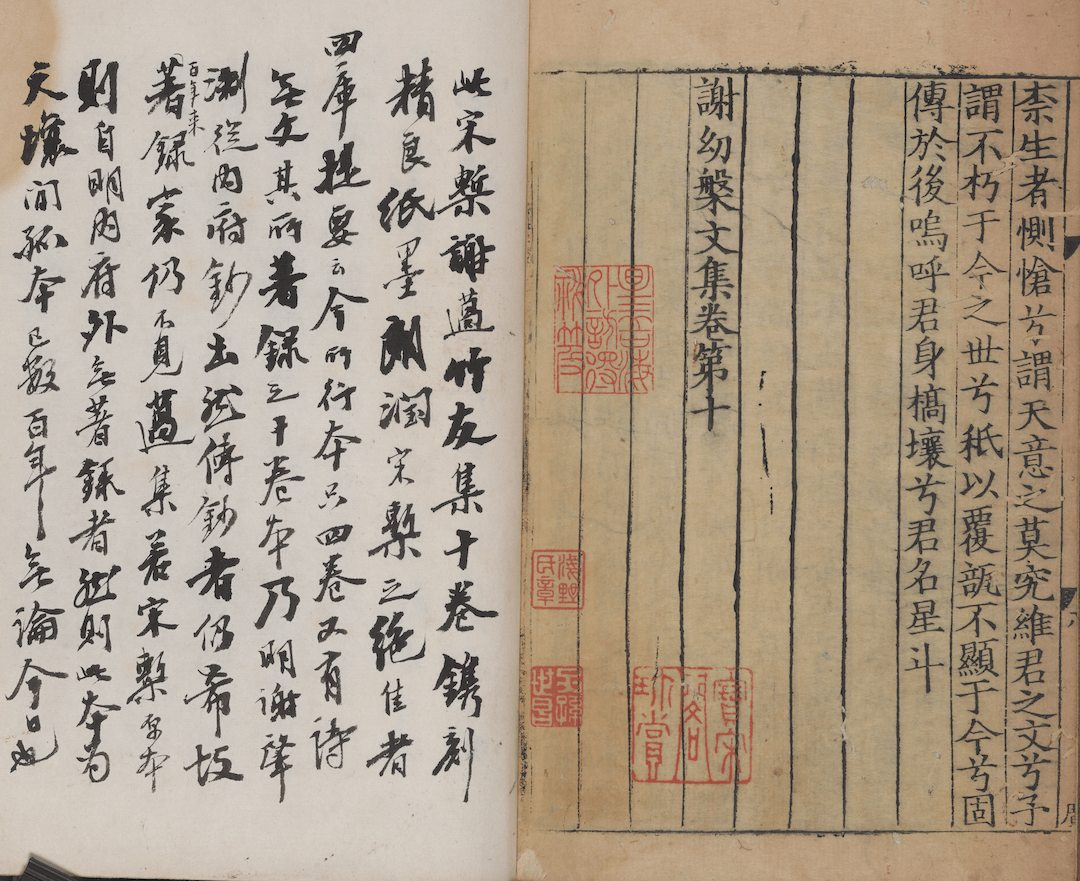 柰生者惻愴兮謂天意之莫究維君之文兮予
謂不朽于今之世兮秪以覆瓿不顯于今兮固
傳於後嗚呼君身槁壤兮君名星斗
謝幼槃文集卷第十
淺野
民章
寶宋
閣
珍賞
此宋槧謝薖竹友集十卷鐫刻
精良紙墨朗潤宋槧之絶佳者
四庫提要云今所行本只四卷又有詩
無文其所著録之十卷本乃明謝肇
淛從内府鈔出然傳鈔者仍希故
百年来
著録家仍不見薖集若宋槧原本
則自明内府外無著録者然則此本為
天壤間孤本已數百年無論今日也